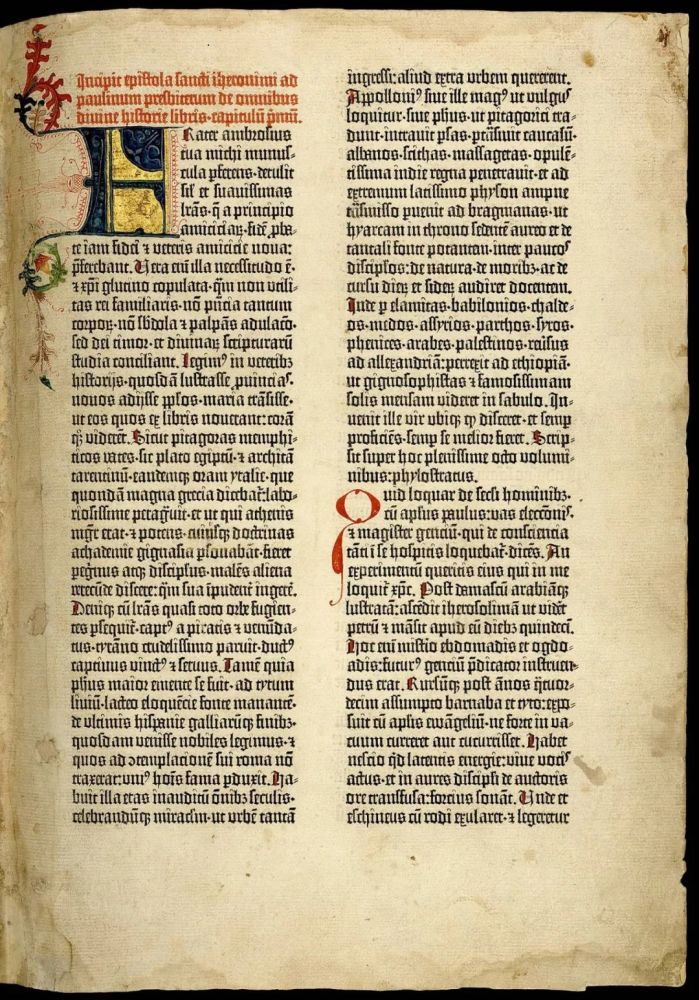 Incipit epistola sancti iheronimi ad
paulinum presbiterum de omnibus
divine historie libris·capitulū p̄mū.
Frater ambrosius
tua michi munus-
cula p̄ferens·detulit
sil̄ et suavissimas
lr̄as·q̄ a principio
amiciciaȝ·fidē ꝓba-
te iam fidei ⁊ veteris amicicie nova:
p̄ferebant. Vera em̄ illa necessitudo ē·
⁊ xp̄i glutino copulata·q̄m non utili-
tas rei familiaris·nō pn̄cia tantum
corpoꝝ·nō sb̄dola ⁊ palpās adulacō·
sed dei timor·et divinaꝝ scripturarū
studia conciliant. Legimꝰ in veteribꝫ
historijs·quosdā lustrasse ꝓvinciaˢ·
novos adijsse pp̄los·maria trāsisse·
ut eos quos ex libris noverant: corā
qꝫ viderēt. Sicut pitagoras memphi-
ticos vates·sic plato egiptū·⁊ architā
tarentinū·eandemqꝫ oram ytalie·que
quondā magna grecia dicebat᷑: labo-
riosissime peragᷓvit·et ut qui athenis
mgr̄ erat·⁊ potens·cuiusqꝫ doctrinas
achademie gignasia ꝑsonabāt·fieret
peg̍nus atqꝫ discipl̄us·malēs aliena
verecūde discere: q̄m sua īpudent̄ ingerē.
Deniqꝫ cū lr̄as quasi toto orbe fugien-
tes ꝑsequit᷑·captꝰ a piratis ⁊ venūda-
tus·tyrāno crudelissimo paruit·ductꝰ
captivus vinctꝰ ⁊ servus. Tamē quia
ph̄us maior emente se fuit·ad tytum
liviū·lacteo eloquēcie fonte manantē·
de ultimis hispanie galliarūqꝫ finibꝫ·
quosdam venisse nobiles legimus·⁊
quos ad ꝯtemplacionē sui roma nō
traxerat: uniꝰ hoīs fama ꝑduxit. Ha-
buit illa etas inauditū oīnibꝫ seculis·
celebrandūqꝫ miraclm̄·ut urbē tantā
ingressi: aliud extra urbem quererent.
Appolloniꝰ sive ille magꝰ ut vulgꝰ
loquitur·sive ph̄us·ut pitagorici tra-
dunt·intravit ꝑsas·ꝑtrāsivit caucasū·
albanos·scithas·massagetas·opulē-
tissima indie regna penetravit·et ad
extremum latissimo physon ampne
trāsmisso ꝑvenit ad bragmanas·ut
hyarcam in throno sedentē aureo et de
tantali fonte potantem·inter paucoˢ
discipl̄os·de natura·de moribꝫ·ac de
cursu dieꝝ et sideꝝ audiret docentem.
Inde ꝑ elamitas·babilonios·chalde-
os·medos·assyrios·parthos·syros·
phenices·arabes·palestinos·reversus
ad allexandriā: perrexit ad ethiopiā·
ut gignosophistas ⁊ famosissimam
solis mensam videret in sabulo. In-
venit ille vir ubiqꝫ qḏ disceret·et semp̄
proficiēs·semp̄ se melior fieret. Scrip-
sit super hoc plenissime octo volumi-
nibus: phylostratus.
Quid loquar de secli hominibꝫ·
cū apl̄us paulus: vas eleccōnis·
⁊ magister genciū·qui de consciencia
tāti ī se hospitis loquebat᷑·dicēs. An
experimentū queritis eius qui in me
loquit᷑ xp̄c. Post damascū arabiāqꝫ
lustratā: ascēdit iherosolimā ut vidēt
petrū ⁊ māsit apud eū diebꝫ quindeci.
Hoc em̄ misterio ebdomadis et ogdo-
adis: futurꝰ genciū p̄dicator instruen-
dus erat. Rursūqꝫ post ānos q̄tuor-
decim assumpto barnaba et tyto: expo-
suit cū apl̄is ewāgeliū·ne forte in va-
cuum curreret aut cucurrisset. Habet
nescio qḏ latentis energie: vive vocis
actus·et in aures discipl̄i de auctoris
ore transfusa: forcius sonāt. Unde et
eschineus cū rodi exularet·⁊ legeretur